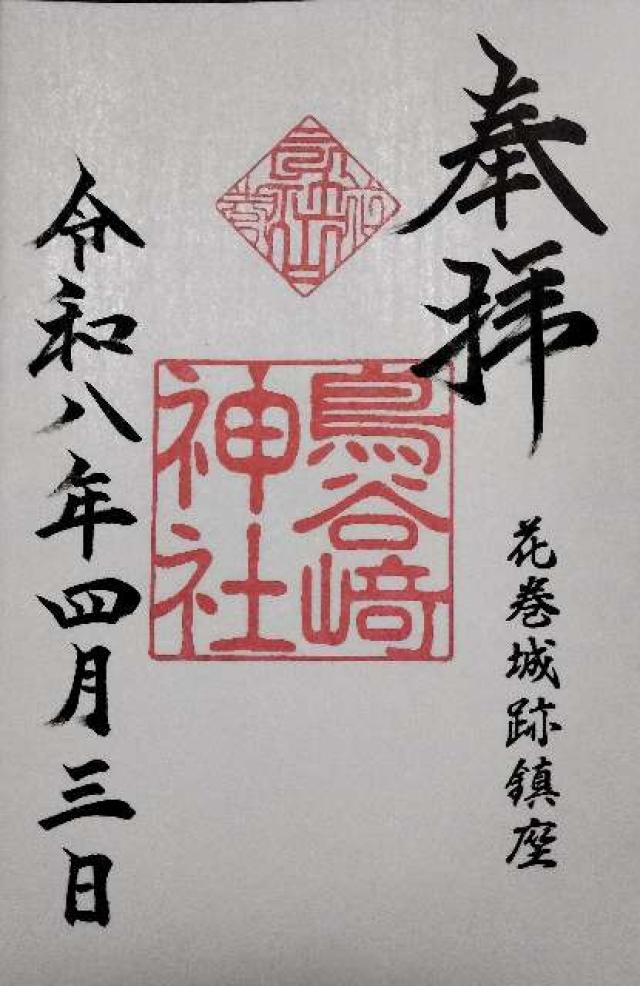 奉拝
花巻城跡鎮座
鳥谷﨑
神社
令和八年四月三日